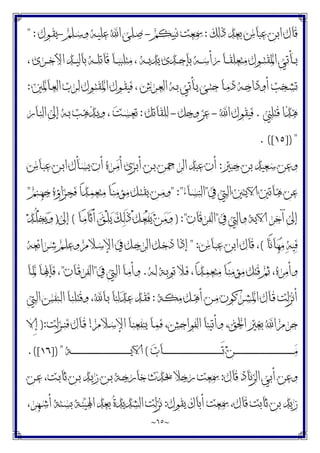 قال ابن عباس بعد ذلك : سمعت نبيكم -صلى الله عليه وسلم- يقول : "
يأتي المقتول متعلقا رأسه بإحدى يديه، متلببا قاتله باليد الأخرى،
تشخب أوداجه دما حتى يأتي به العرش، فيقول المقتول لرب العالمين:
هذا قتلني . فيقول الله -عز وجل- للقاتل: تعست، ويذهب به إلى النار
" ([١٥]) .
وعن سعيد بن جبير: أن عبد الرحمن بن أبزى أمره أن يسأل ابن عباس
عن هاتين الآيتين التي في "النساء": "ومن يقتل مؤمنا متعمدا فجزاؤه جهنم"
إلى آخر الآية والتي في "الفرقان": (ومن يفعل ذلك يلق أثاما) إلى (ويخلد
فيه مهانا)، قال ابن عباس: " إذا دخل الرجل في الإسلام وعلم شرائعه
وأمره، ثم قتل مؤمنا متعمدا، فلا توبة له. وأما التي في "الفرقان"، فإنها لما
أنزلت قال المشركون من أهل مكة: فقد عدلنا بالله، وقتلنا النفس التي
حرم الله بغير الحق، وأتينا الفواحش، فما ينفعنا الإسلام! قال فنزلت: (إلا
من تاب) الآية " ([١٦]) .
وعن أبي الزناد قال: سمعت رجلا يحدث خارجة بن زيد بن ثابت، عن
زيد بن ثابت قال، سمعت أباك يقول: نزلت الشديدة بعد الهينة بستة أشهر،
~٦٥~